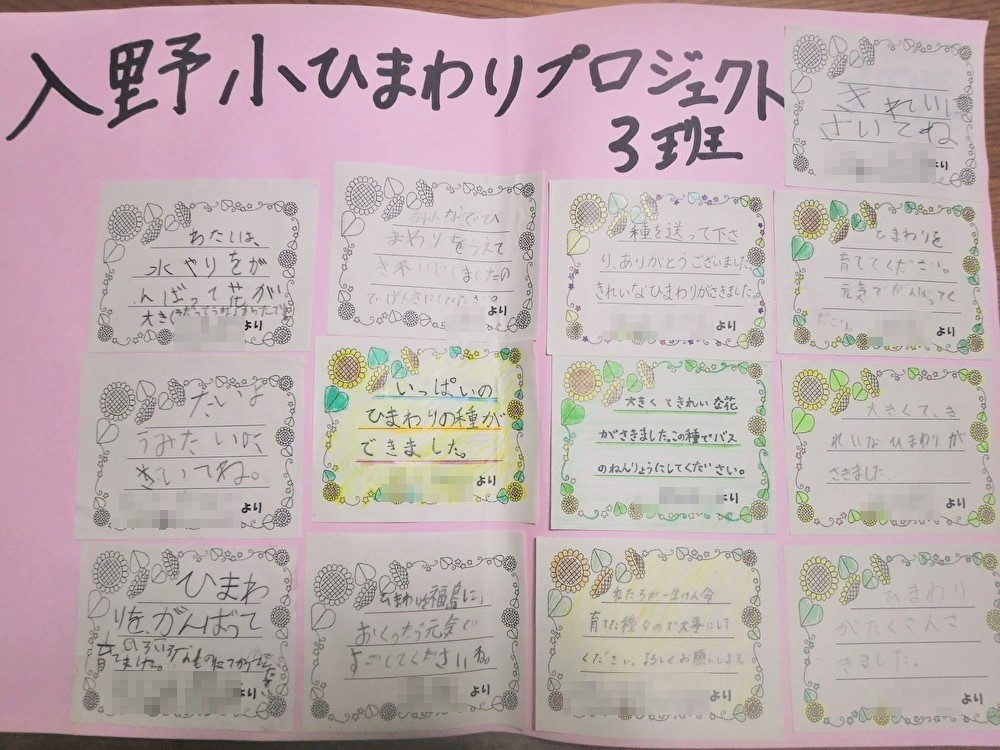 入野小ひまわりプロジェクト
3班
きれいに
さいてね
より
わたしは、
水やりをが
んばって花が
大きく
より
みんなでひ
まわりをうえて
より
種を送って下さ
り、ありがとうございました。
きれいなひまわりがさきました。
より
ひまわりを
育ててください。
元気でがんばってく
ださい。
より
たいよ
うみたいに
さいてね。
より
いっぱいの
ひまわりの種が
できました。
より
大きくてきれいな花
がさきました。この種でバス
のねんりょうにしてください。
より
大きくて、き
れいなひまわりが
さきました
より
ひまわ
りを、がんばって
育てました。いろいろ
より
ひまわり福島に
おくったら元気で
すごしてくださいね。
より
私たちが一生けん命
育てた種なので大事にして
ください。よろしくお願いします
より
ひまわり
がたくさんさ
きました。
より